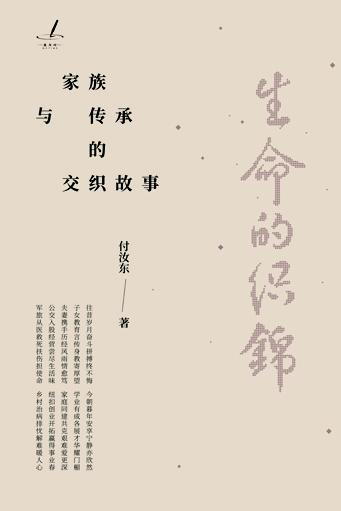 生命的织錦
家族
与传承
的
交织故事
付汝东——著
往昔岁月奋斗拼搏终不悔 今朝暮年安享宁静亦欣然
子女教育言传身教寄厚望 学业有成各展才华耀门楣
夫妻携手历经风雨情愈笃 家庭同建共克艰难爱更深
公交入股经营尝尽生活味 纽扣创业开拓赢得事业春
军旅从医救死扶伤担使命 乡村治病排忧解难暖人心